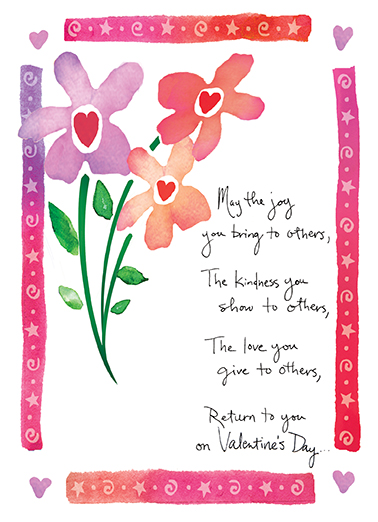 May the joy
you bring to others,
The kindness you
show to others,
The love you
give to others,
Return to you
on Valentine's Day...